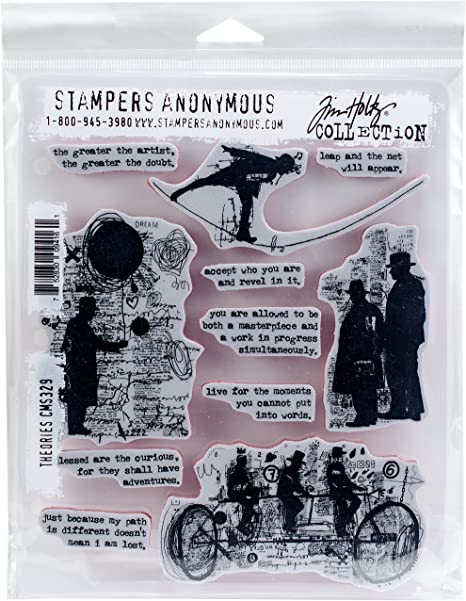 STAMPERS ANONYMOUS
1-800-945-3980 WWW.STAMPERSANONYMOUS.COM
Tim Holtz
COLLECTION
the greater the artist,
the greater the doubt.
leap and the net
will appear.
DREAM
accept who you are
and revel in it.
you are allowed to be
both a masterpiece and
a work in progress
simultaneously.
live for the moments
you cannot put
into words.
THEORIES CMS329
lessed are the curious,
for they shall have
adventures.
7
6
5
just because my path
is different doesn't
mean i am lost.